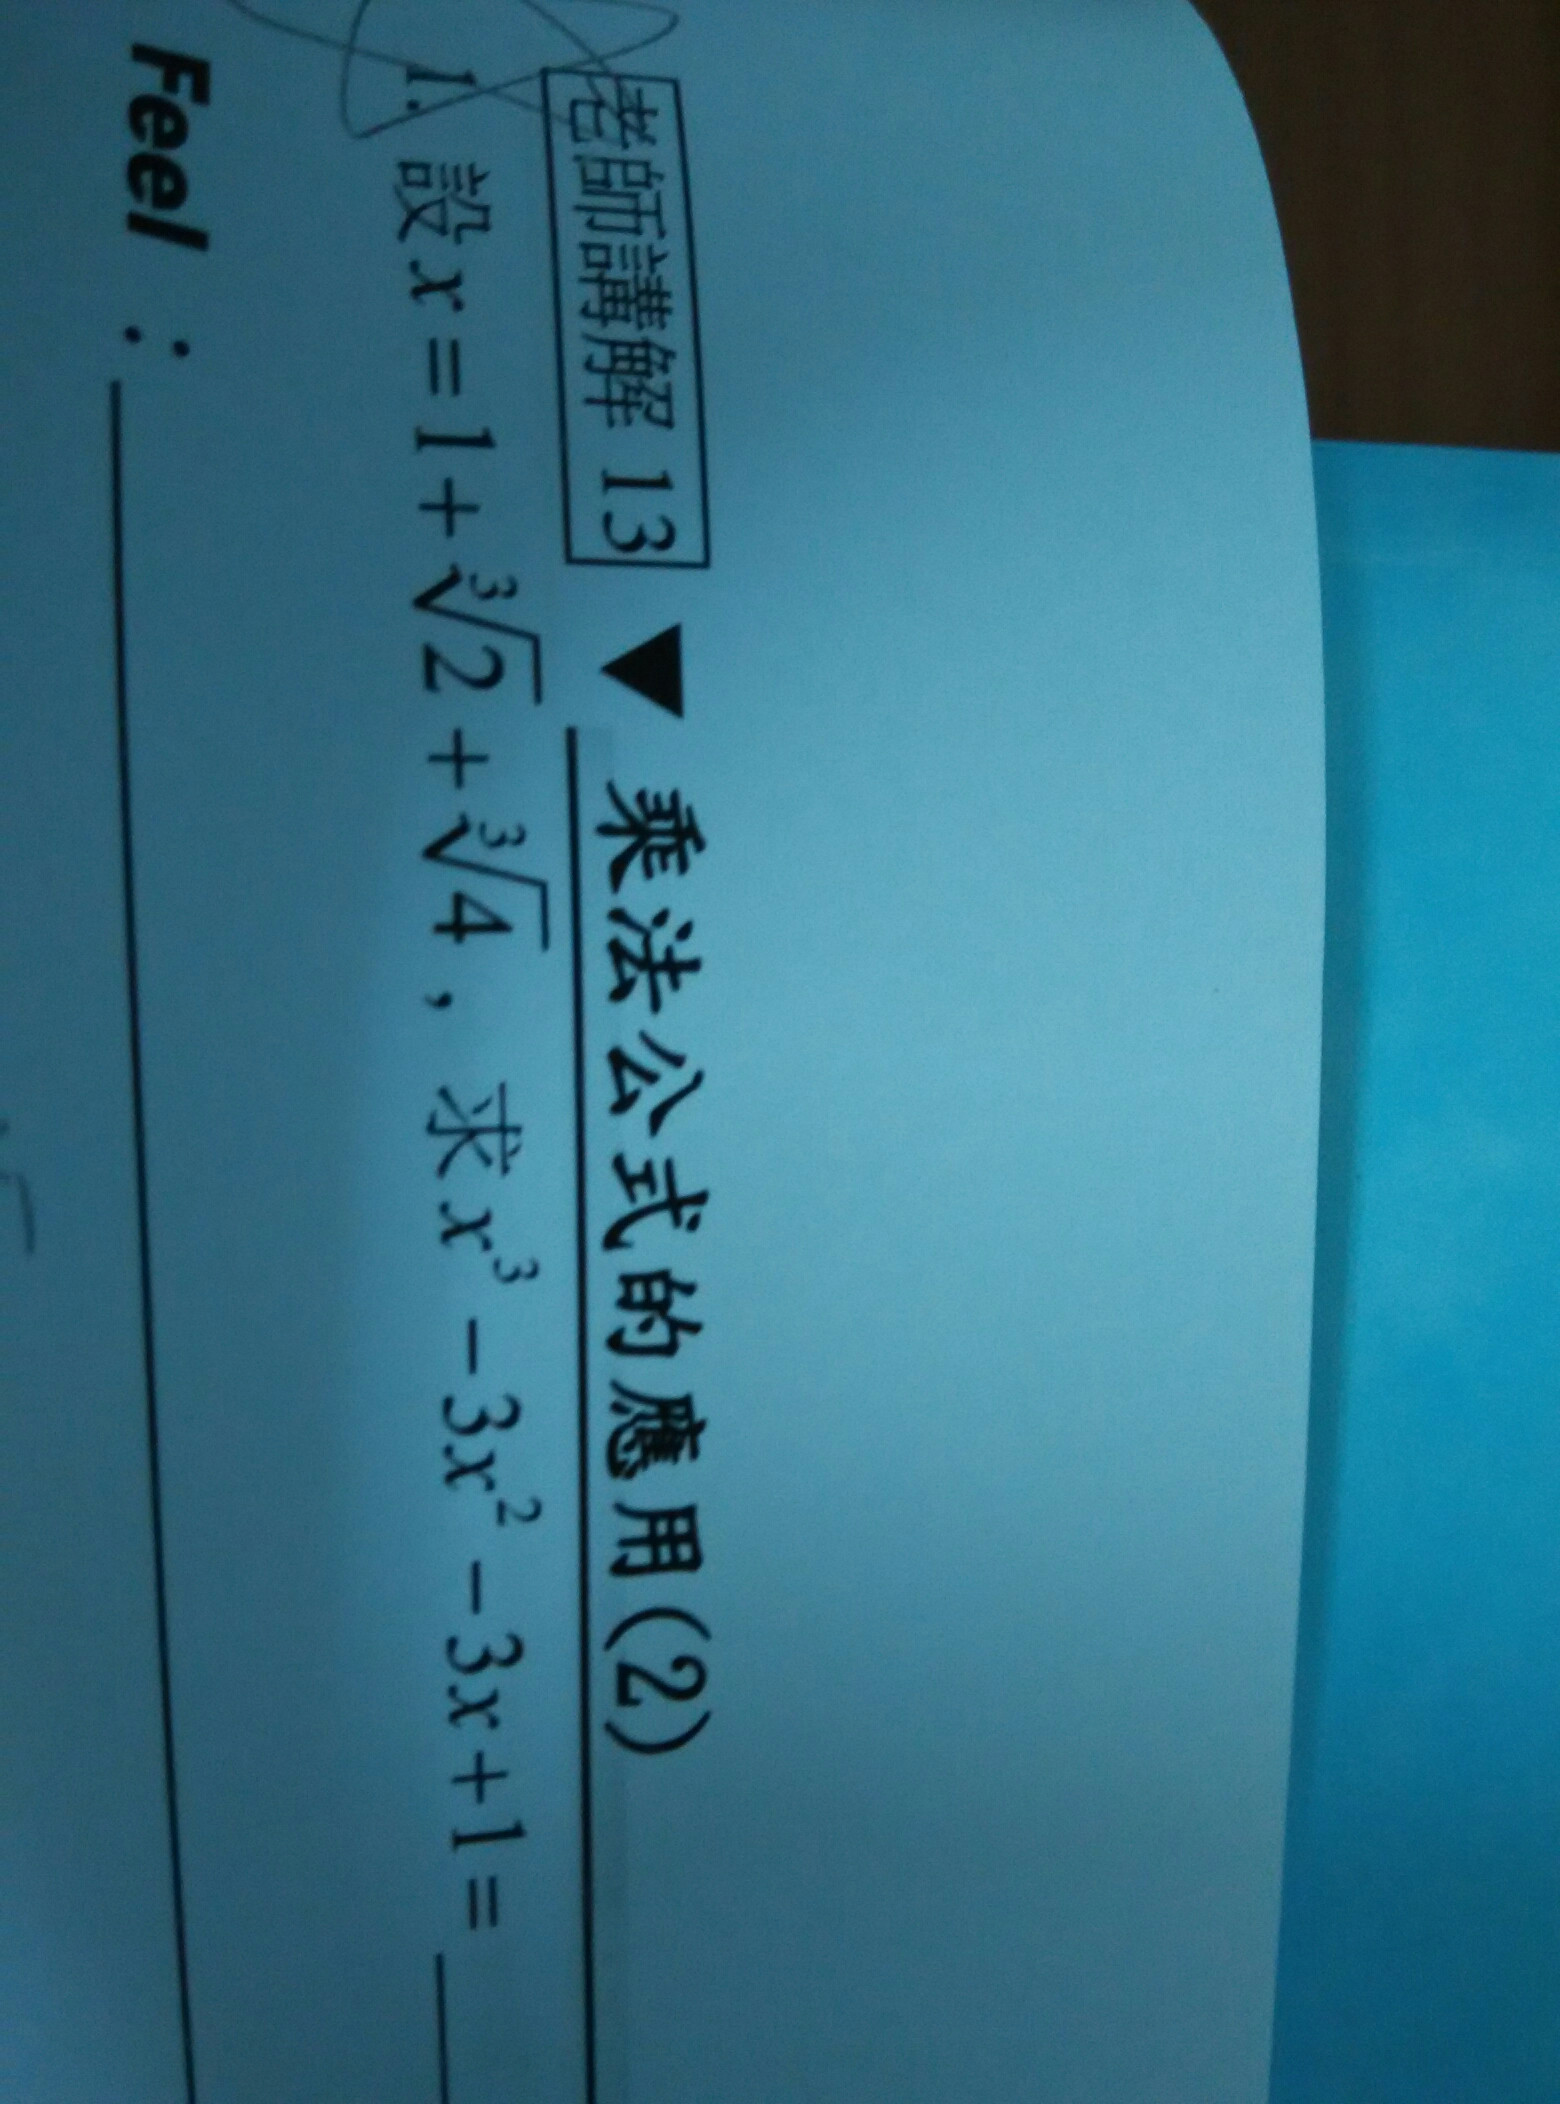 老師講解 13 ▼ 乘法公式的應用(2)
1. 設 x = 1 + ∛2 + ∛4 , 求 x³ − 3x² − 3x + 1 = ____
Feel :